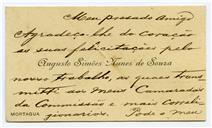 Meu presado Amigo
Agradeço-lhe do Coração
as suas felicitações pelo
Augusto Simões Nunes de Souza
nosso trabalho, as quaes trans
mitti aos Meus Camaradas
da Commissão e mais correli-
gionarios. Pode o meu
MORTAGUA